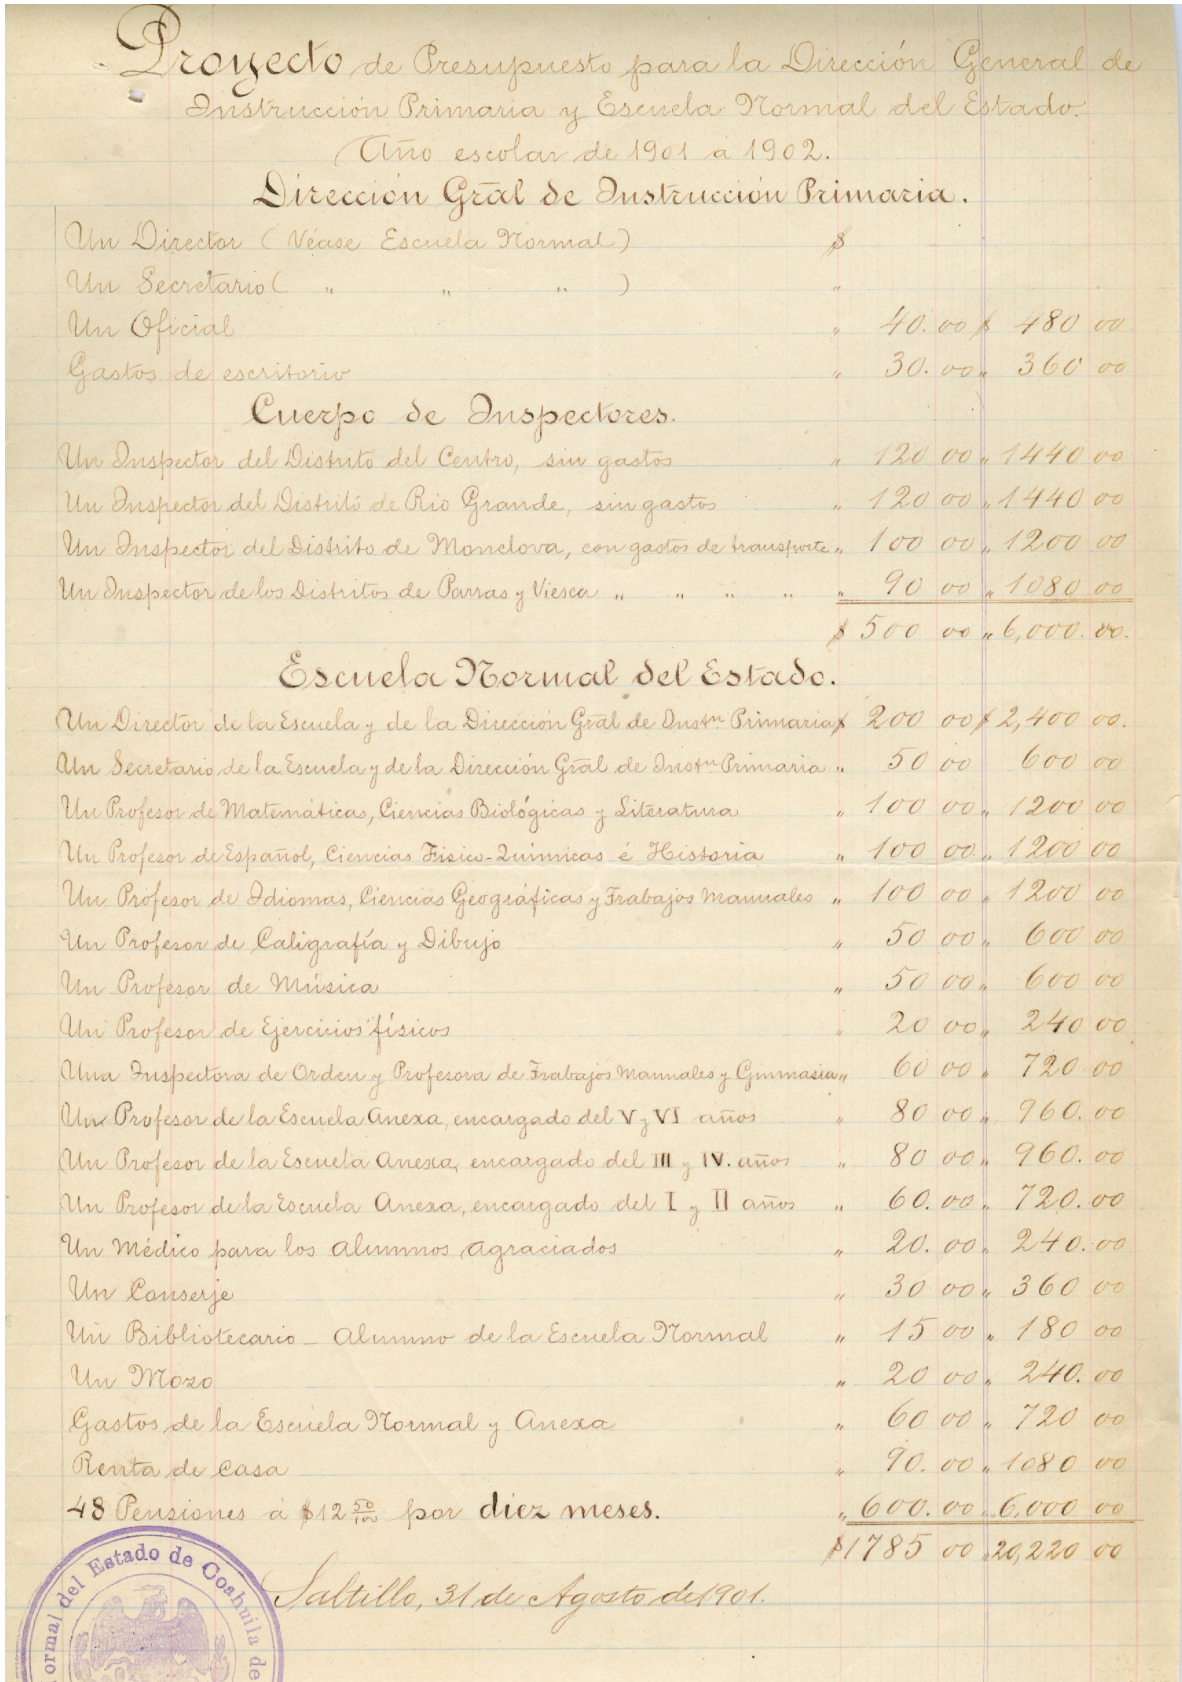 Proyecto de Presupuesto para la Dirección General de
Instrucción Primaria y Escuela Normal del Estado.
Año escolar de 1901 a 1902.
Dirección Gral de Instrucción Primaria.
Un Director (Véase Escuela Normal) $
Un Secretario ( " " " ) "
Un Oficial " 40.00 $ 480 00
Gastos de escritorio " 30.00 " 360 00
Cuerpo de Inspectores.
Un Inspector del Distrito del Centro, sin gastos " 120 00 " 1440 00
Un Inspector del Distrito de Rio Grande, sin gastos " 120 00 " 1440 00
Un Inspector del Distrito de Monclova, con gastos de transporte " 100 00 " 1200 00
Un Inspector de los Distritos de Parras y Viesca " " " " " 90 00 " 1080 00
$ 500 00 " 6,000.00.
Escuela Normal del Estado.
Un Director de la Escuela y de la Dirección Gral de Instn Primaria $ 200 00 $ 2,400 00.
Un Secretario de la Escuela y de la Dirección Gral de Instn Primaria " 50 00 600 00
Un Profesor de Matemáticas, Ciencias Biológicas y Literatura " 100 00 " 1200 00
Un Profesor de Español, Ciencias Físico-Químicas é Historia " 100 00 " 1200 00
Un Profesor de Idiomas, Ciencias Geográficas y Trabajos Manuales " 100 00 " 1200 00
Un Profesor de Caligrafía y Dibujo " 50 00 " 600 00
Un Profesor de Música " 50 00 " 600 00
Un Profesor de Ejercicios físicos " 20 00 " 240 00
Una Inspectora de Orden y Profesora de Trabajos Manuales y Gimnasia " 60 00 " 720 00
Un Profesor de la Escuela Anexa, encargado del V y VI años " 80 00 " 960.00
Un Profesor de la Escuela Anexa, encargado del III y IV. años " 80 00 " 960.00
Un Profesor de la Escuela Anexa, encargado del I y II años " 60.00 " 720.00
Un Médico para los alumnos agraciados " 20.00 " 240.00
Un Conserje " 30 00 " 360 00
Un Bibliotecario - alumno de la Escuela Normal " 15 00 " 180 00
Un Mozo " 20 00 " 240.00
Gastos de la Escuela Normal y Anexa " 60 00 " 720 00
Renta de casa " 90.00 " 1080 00
48 Pensiones á $12 50/100 por diez meses. " 600.00 " 6,000 00
$1785 00 " 20,220 00
Saltillo, 31 de Agosto de 1901.
ormal del Estado de Coahuila de